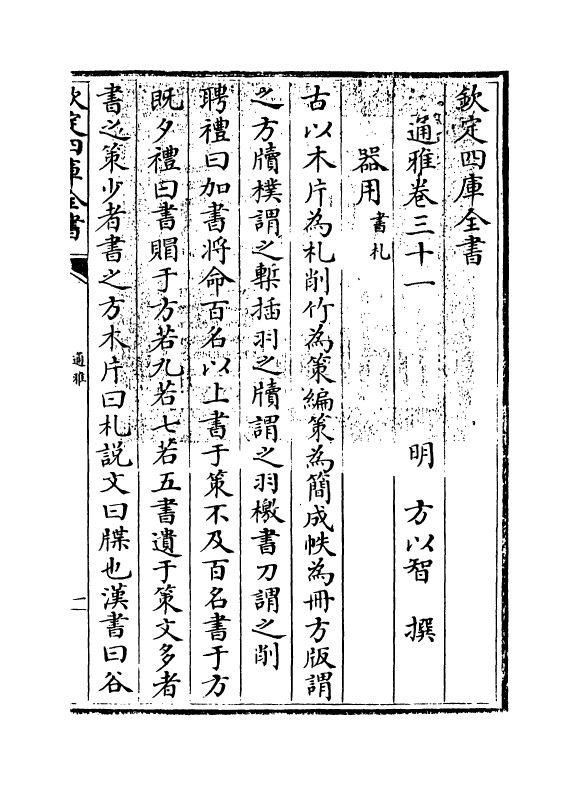 欽定四庫全書
通雅卷三十一
明 方以智 撰
器用 書札
古以木片為札削竹為策編策為簡成帙為冊方版謂
之方牘樸謂之槧插羽之牘謂之羽檄書刀謂之削
聘禮曰加書將命百名以上書于策不及百名書于方
既夕禮曰書賵于方若九若七若五書遣于策文多者
書之策少者書之方木片曰札説文曰牒也漢書曰谷
欽定四庫全書
通雅
二